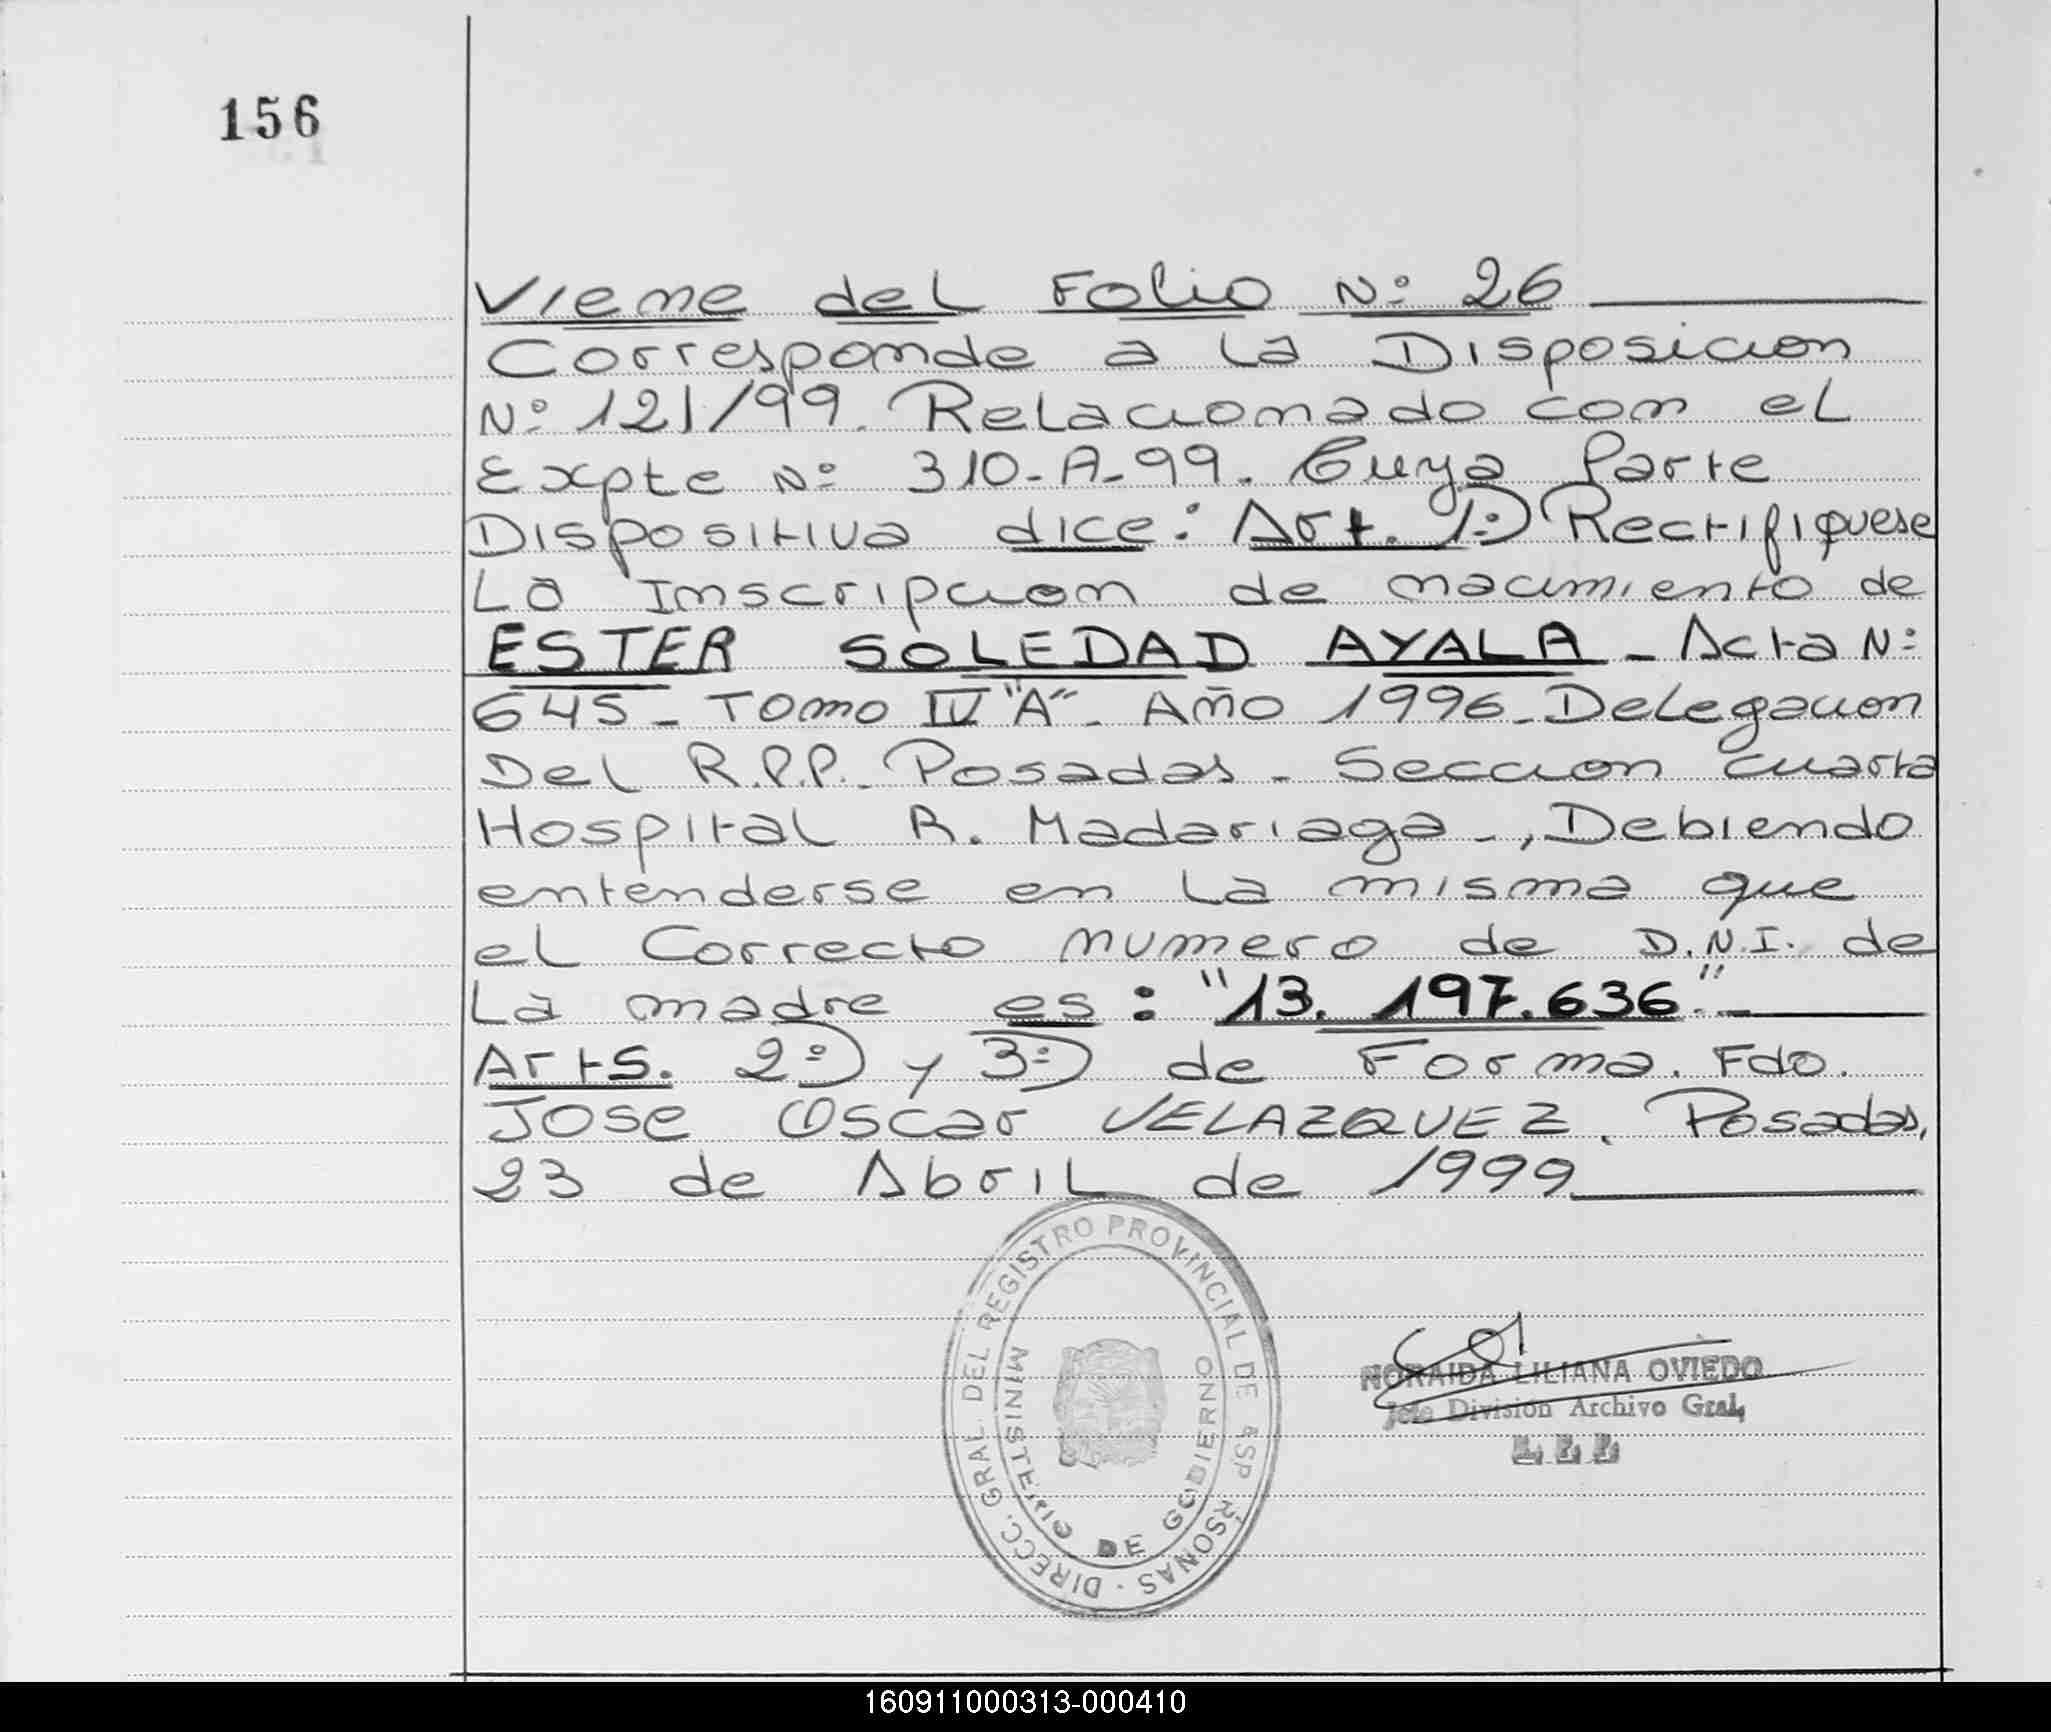 156
Viene del Folio Nº 26
Corresponde a la Disposicion
Nº 121/99. Relacionado con el
Expte Nº 310-A-99. Cuya Parte
Dispositiva dice: Art. 1º) Rectifiquese
La Inscripcion de nacimiento de
ESTER SOLEDAD AYALA - Acta Nº
645 - Tomo IV "A" - Año 1996 - Delegacion
Del R.P.P. Posadas - Seccion cuarta
Hospital R. Madariaga -, Debiendo
entenderse en la misma que
el Correcto numero de D.N.I. de
La madre es: "13.197.636" -
Arts. 2º) y 3º) de Forma. Fdo.
Jose Oscar VELAZQUEZ. Posadas,
23 de Abril de 1999
DIRECC. GRAL. DEL REGISTRO PROVINCIAL DE
PERSONAS
MINISTERIO DE GOBIERNO
NORAIDA LILIANA OVIEDO
Jefe División Archivo Gral.
160911000313-000410